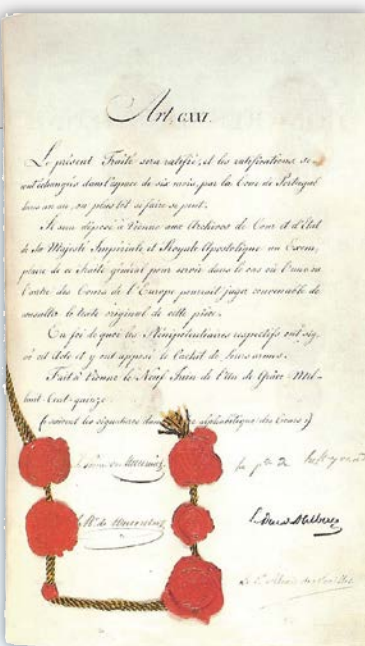 Art. CXXI.
Le présent Traité sera ratifié, et les ratifications se-
ront échangées dans l'espace de six mois, par la Cour de Portugal
dans un an, ou plus tôt si faire se peut.
Il sera déposé à Vienne aux Archives de Cour et d'Etat
de Sa Majesté Impériale et Royale Apostolique un Exem,
plaire de ce Traité général pour servir dans le cas où l'une ou
l'autre des Cours de l'Europe pourrait juger convenable de
consulter le texte original de cette pièce.
En foi de quoi les Plénipotentiaires respectifs ont sig,
né cet Acte et y ont apposé le Cachet de leurs armes.
Fait à Vienne le Neuf Juin de l'An de Grâce Mil-
huit-Cent-quinze.
(suivent les signatures dans alphabétique des Cours:)
Le
Le